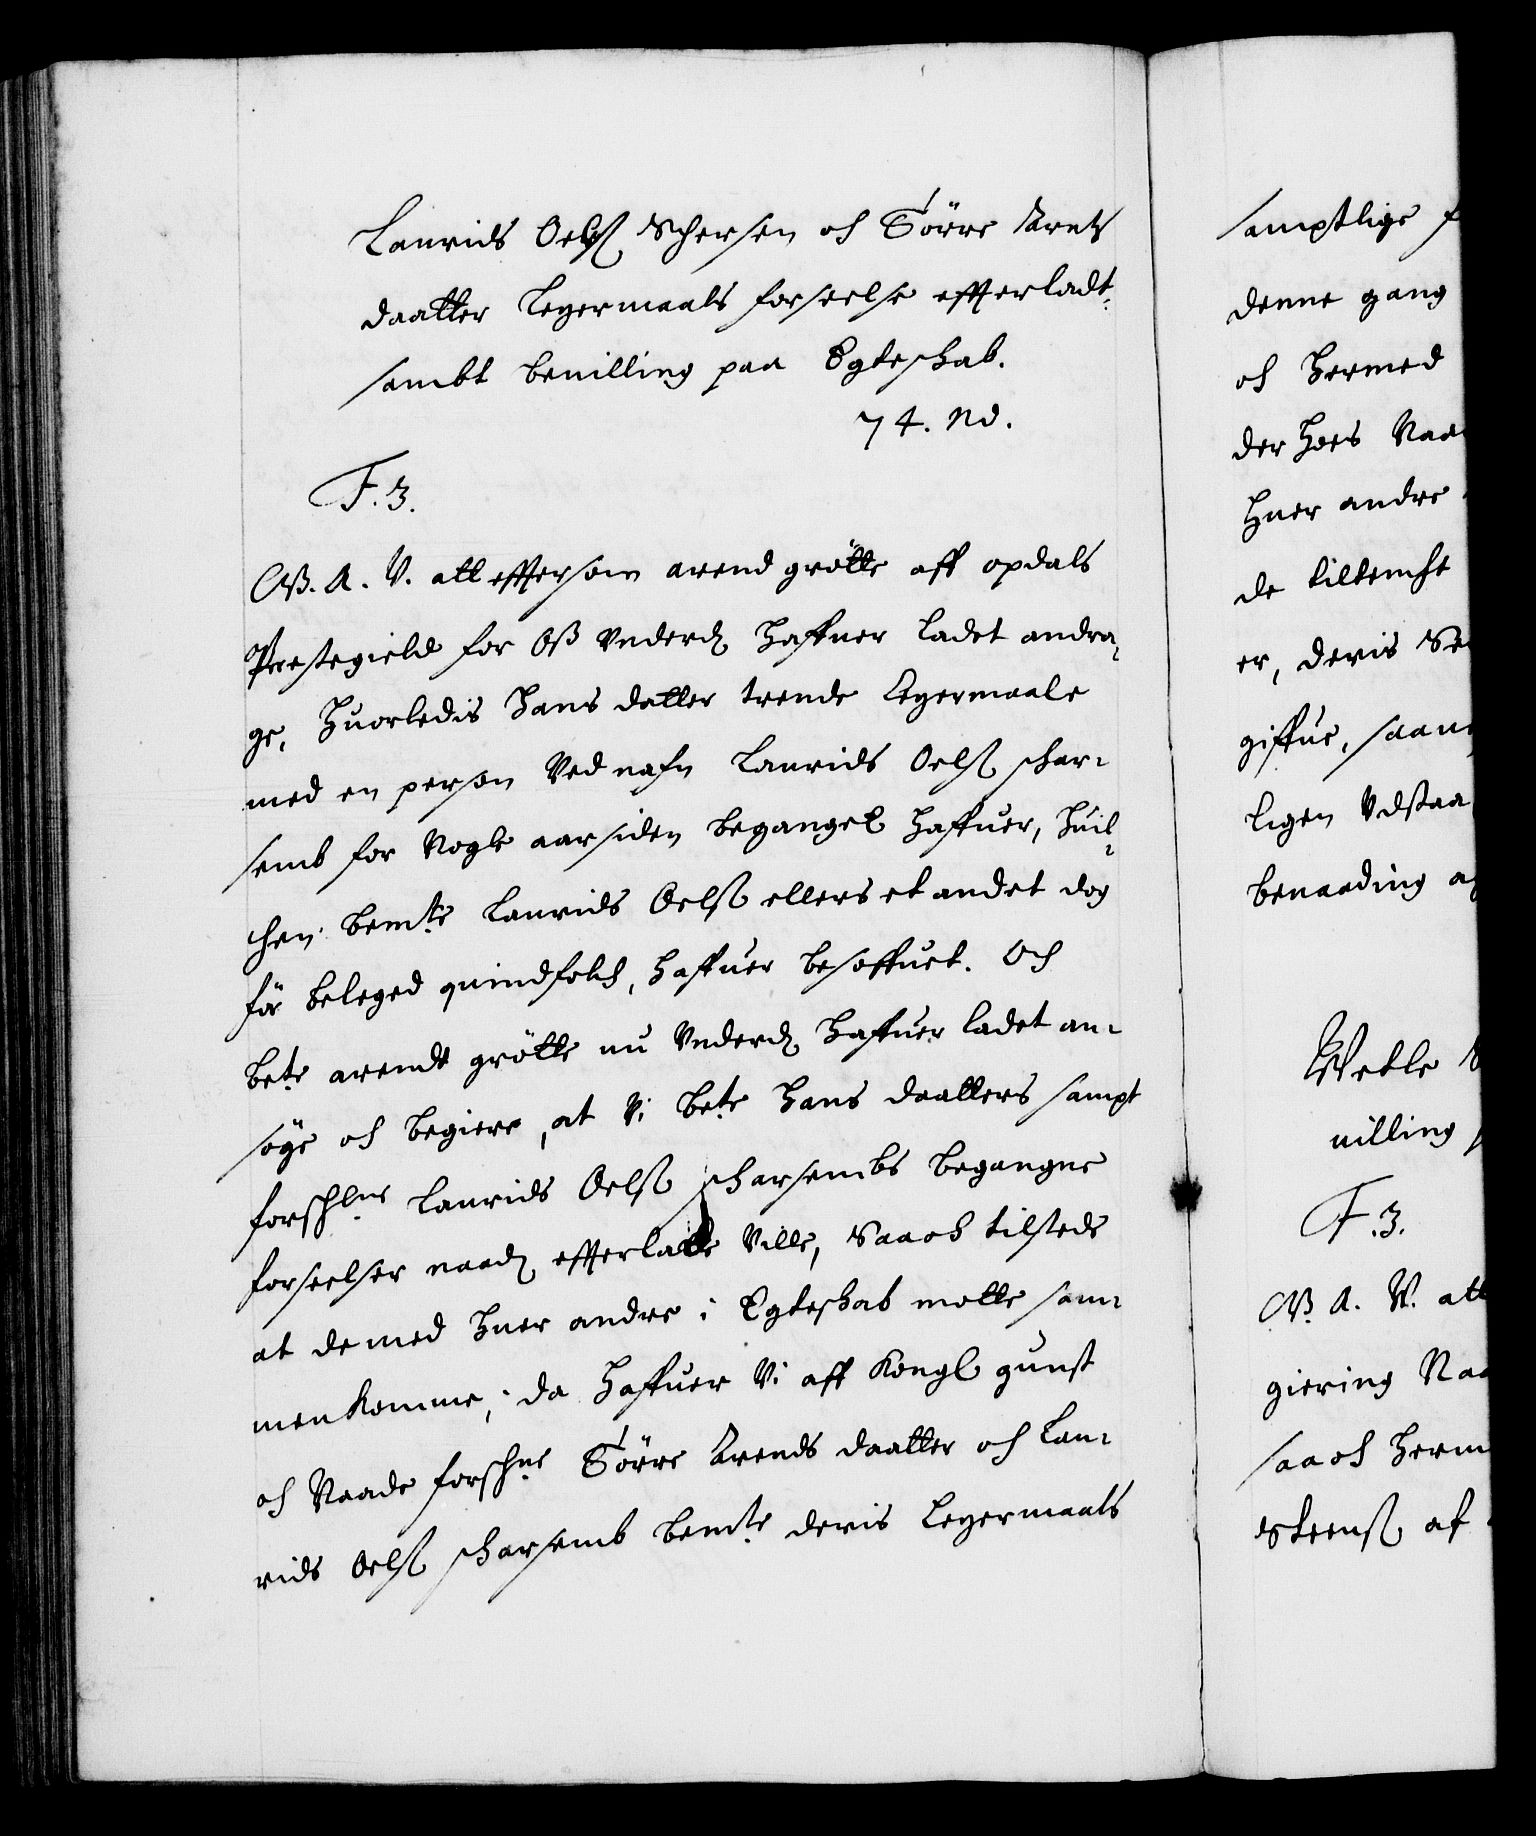 Laurids Oelß Schersen och Sörre Arents
daatter legermaals forseelse efterladt
sambt beuilling paa Egteskab.
74. Nd.
F. 3.
W. A. V. att eftersom arend grötte aff opdals
Prestegield for Oß Underd. haffuer ladet andra-
ge, huorledis hans datter trende Legermaale
med en person Ved nafn Laurids Oelß skar-
semb for Nogle aar siden begangel haffuer, huil-
chen bemte Laurids Oelß ellers et andet dog
för beleged quindfolch, haffuer besoffuet. Och
bete arendt grötte nu Underd. haffuer ladet an-
söge och begiere, at Vi bete hans daatters sampt
forschne Laurids Oelß skarsembs begangne
forseelser naad. efterlatte Ville, Saa och tilstede
at de med huer andre i Egteskab motte sam-
menkomme, da haffuer Vi aff Kongl gunst
och Naade forschne Sörre Arends daatter och Lau-
rids Oelß skarsemb bemte deris legermaals
samptlige
denne gang
och hermed
der hoes
huer andre
de tiltencht
er, deris
giffue,
ligen Udstaa
benaading
Wetle
uilling
F. 3.
W. A. V. att
giering
saa och
Steenß af